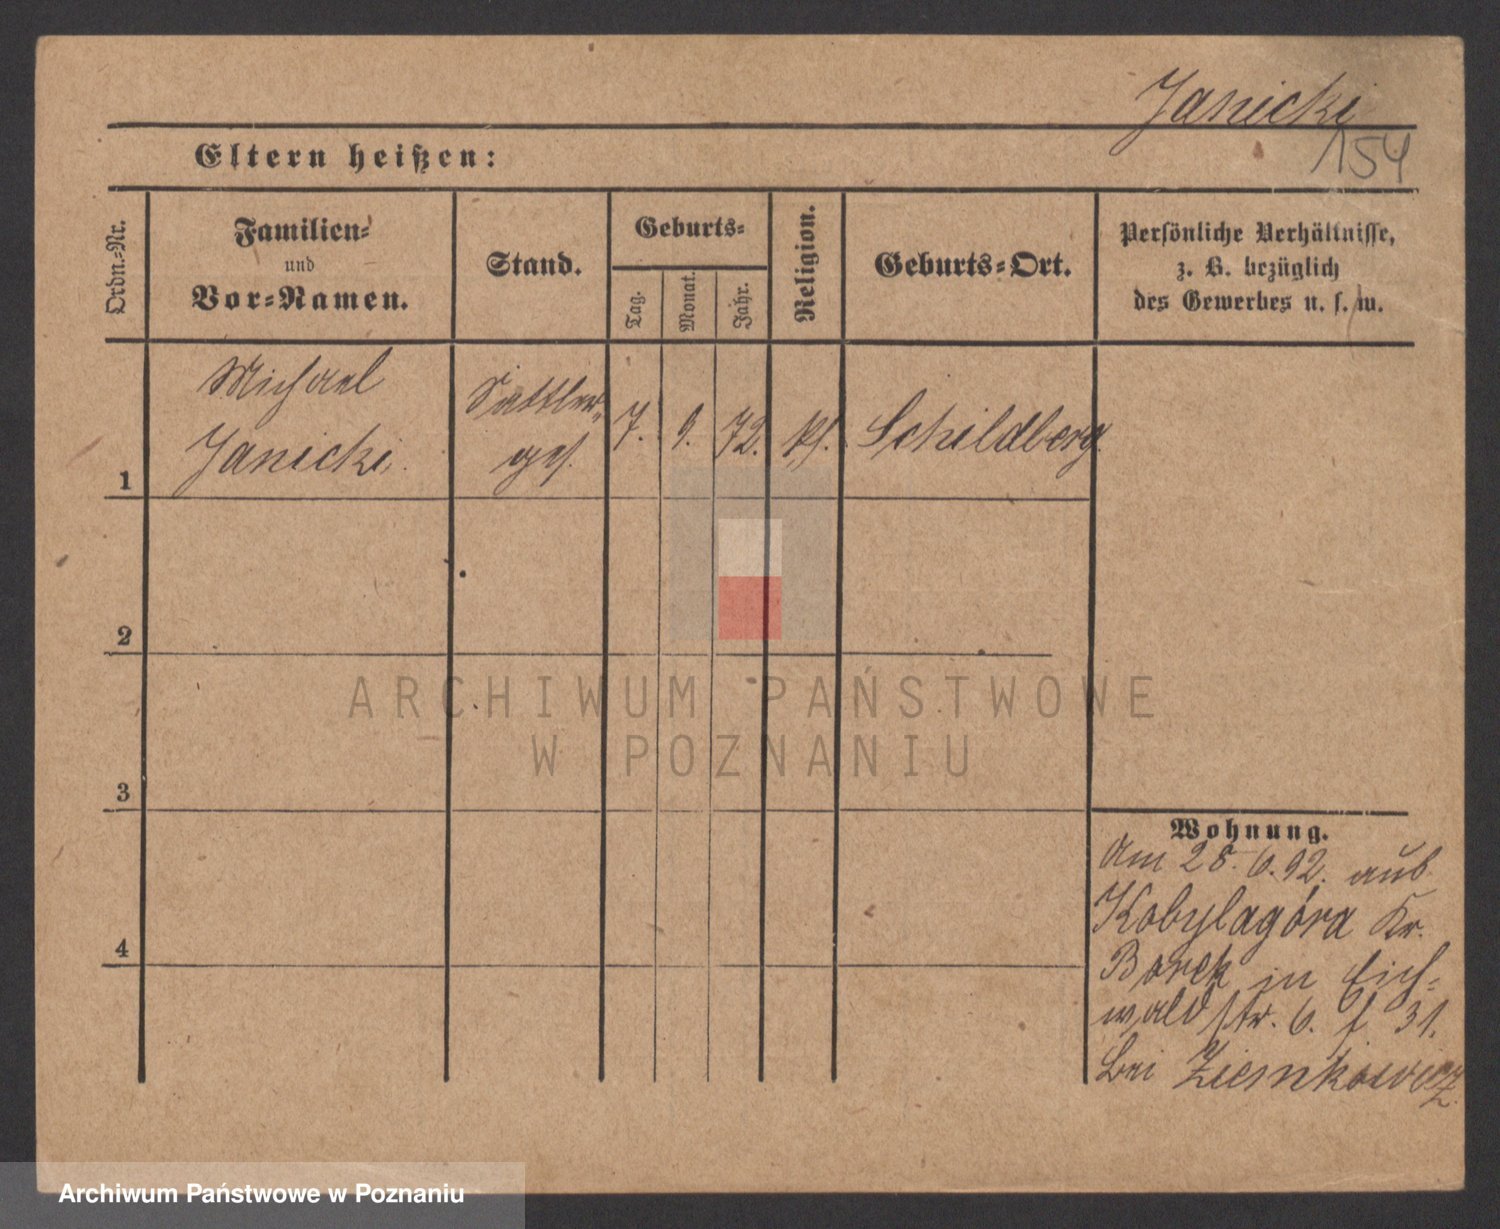 Janicki
154
Eltern heißen:
Ordn.-Nr.
Familien-
und
Vor-Namen.
Stand.
Geburts-
Tag.
Monat.
Jahr.
Religion.
Geburts-Ort.
Persönliche Verhältnisse,
z. B. bezüglich
des Gewerbes u. s. w.
1
Michael
Janicki.
Sattler-
ges.
7.
9.
72.
kf.
Schildberg.
2
3
4
Wohnung.
Am 28. 6. 92. aus
Kobylagóra Kr.
in Eich-
wald str. 6. f 31.
bei Ziemkowicz
ARCHIWUM PAŃSTWOWE
W POZNANIU
Archiwum Państwowe w Poznaniu